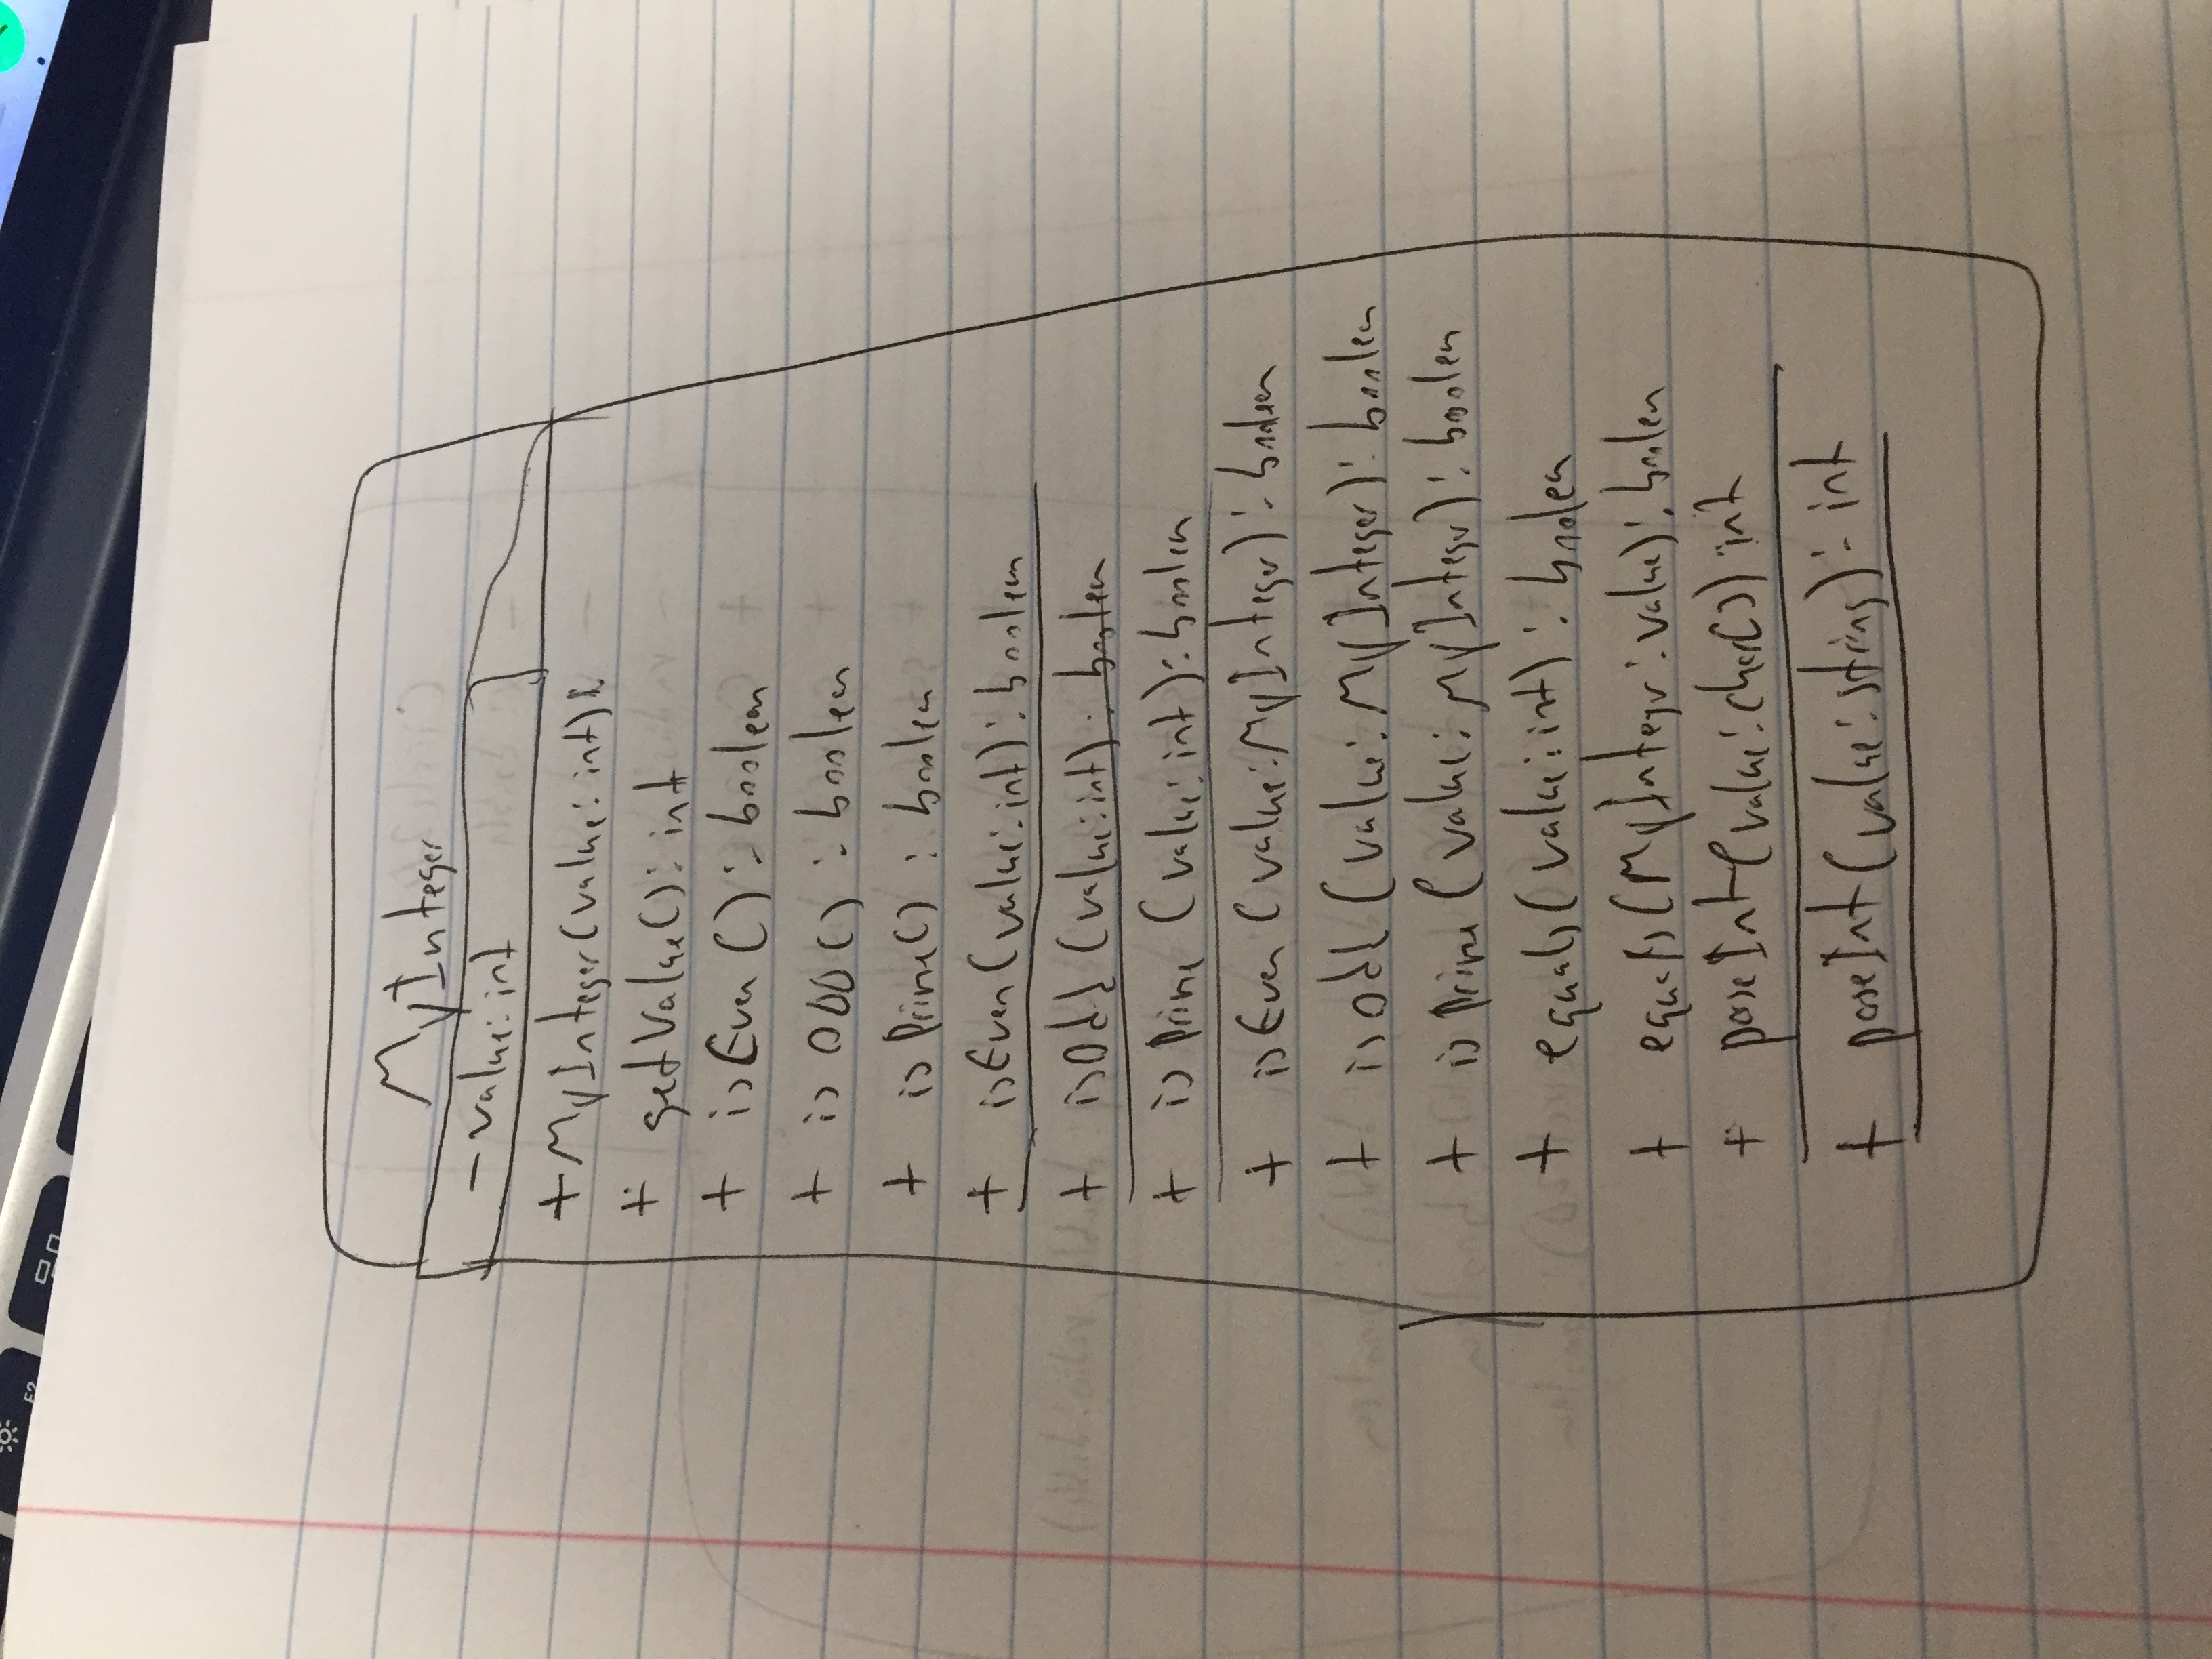 F2
MyInteger
- value: int
+ MyInteger(value: int)
+ getValue(): int
+ isEven(): boolean
+ isODD(): boolean
+ isPrime(): boolean
+ isEven(value: int): boolean
+ isOdd(value: int): boolean
+ isPrime(value: int): boolean
+ isEven(value: MyInteger): boolean
+ isOdd(value: MyInteger): boolean
+ isPrime(value: MyInteger): boolean
+ equals(value: int): boolean
+ equals(MyInteger: value): boolean
+ parseInt(value: char[]) int
+ parseInt(value: string): int